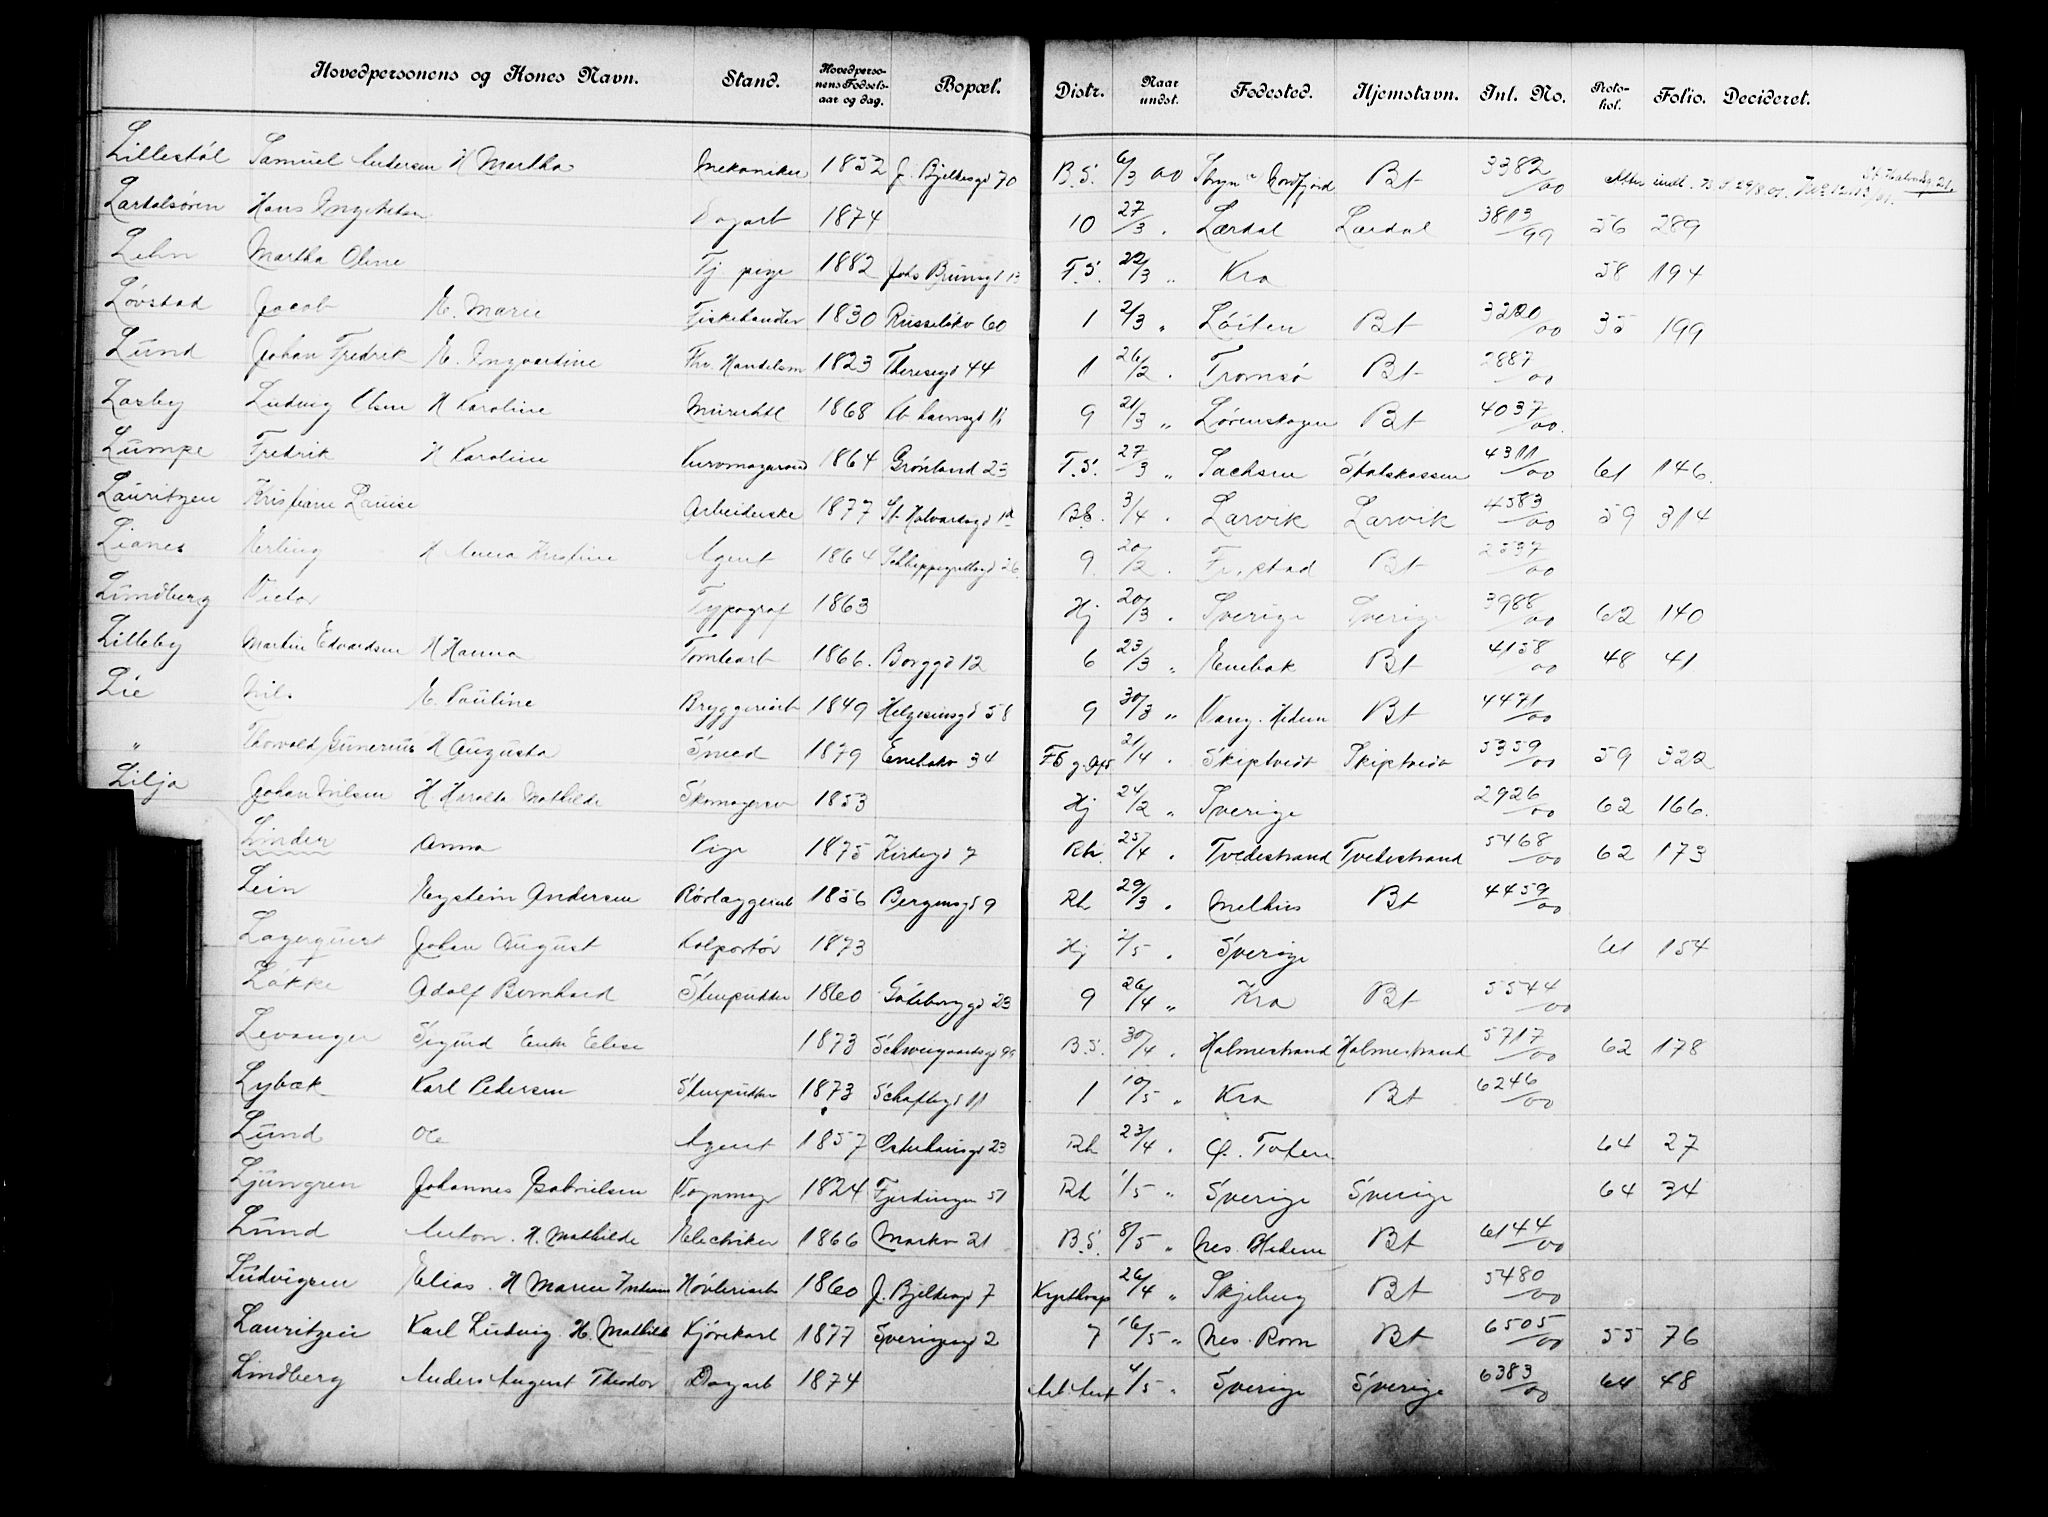 Hovedpersonens og Kones Navn. Stand. Hovedpersonens Fødselsaar og dag. Bopæl. Distr. Naar undst. Fødested. Hjemstavn. Inl. No. Protokol. Folio. Decideret.
Lillestöl Samuel Andersen H Martha Mekaniker 1852 J. Bjelkesgd 70 B.S. 6/3 00 Stryn Nordfjord Bt 3382/00
Hans Dagarb 1874 10 27/3 . Lærdal Lærdal 3813/99 56 289
Lehn Martha Oline Tj pige 1882 Johs Brunsgd 13 F.S. 22/3 „ Kra 58 194
Lövstad Jacob E. Marie Fiskehandler 1830 Russelökv 60 1 2/3 „ Löiten Bt 35 199
Lund Johan Fredrik E. Ingvardine Fhv. Handelsm 1823 Theresegd 44 1 26/2 . Tromsö Bt 2887/00
Losby Ludvig Olsen H Karoline 1868 9 21/3 „ Lörenskogen Bt 4037/00
Lumpe Fredrik H Karoline Kurvmagersvd 1864 Grönland 23 F.S. 27/3 „ Sachsen Statskassen 4311/00 61 146.
Lauritzen Kristiane Louise Arbeiderske 1877 St. Halvardsgd B.S. 3/4 . Larvik Larvik 4583/00 59 314
Lianes Erling H Anna Kristine Agent 1864 Schleppegrellsgd 26. 9. 20/2 . Fr.stad Bt 2537/00
Lundberg Victor Typograf 1863 Hj 20/3 . Sverige Sverige 3988/00 62 140
Lilleby Martin Edvardsen H Hanna Tomtearb 1866. Borggd 12 6 23/3 „ Enebak Bt 4158/00 48 41
Lie Nils E. Pauline Bryggeriarb 1849 Helgesensgd 58 9 30/3 „ Vang. Hedem Bt 4471/00
„ Thorvald Gunerius H Augusta Smed 1879 Enebakv 34 21/4 . Skiptvedt Skiptvedt 5359/00 59 322
Lilja Johan Nilsen H Mathilde Skomagersv 1853 Hj 24/2 „ Sverige 2926/00 62 166.
Linder Anna Pige 1875 Kirkegd 7 Rh. 25/4 . Tvedestrand Tvedestrand 5468/00 62 173
Lein Eystein Andersen Rörlæggerarb 1856 Bergensgd 9 Rh 29/3 . Melhus Bt 4459/00
Lagerquist Johan August Kolportör 1873 Hj 2/5 . Sverige 61 154
Lökke Adolf Bernhard Stenpukker 1860 Göteborggd 23 9 26/4 „ Kra Bt 5544/00
Levanger Sigurd Enke Elise 1873 Schweigaardsgd B.S. 30/4 . Holmestrand Holmestrand 5717/00 62 178
Lybæk Karl Pedersen Stenpukker 1873 Schaftegd 11 1 10/5 „ Kra Bt 6246/00
Lund Ole Agent 1857 Osterhausgd 23 Rh 23/4 . Ø. Toten 64 27
Ljungren Johannes Gabrielsen Vognmag 1824 Fjerdingen 51 Rh 1/5 „ Sverige Sverige 64 34
Lund Anton. H. Mathilde Electriker 1866 Markv 21 B.S. 8/5 „ Nes. Hedem Bt 6144/00
Ludvigsen Elias. H Maren Hövleriarb 1860 J. Bjelkesgd 7 26/4 „ Skjeberg Bt 5480/00
Lauritzen Karl Ludvig H. Mathilde Kjörekarl 1877 Sverigesgd 2 7 16/5 „ Nes. Rom Bt 6505/00 55 76
Lindberg Anders August Theodor Dagarb 1874 4/5 „ Sverige Sverige 6383/00 64 48